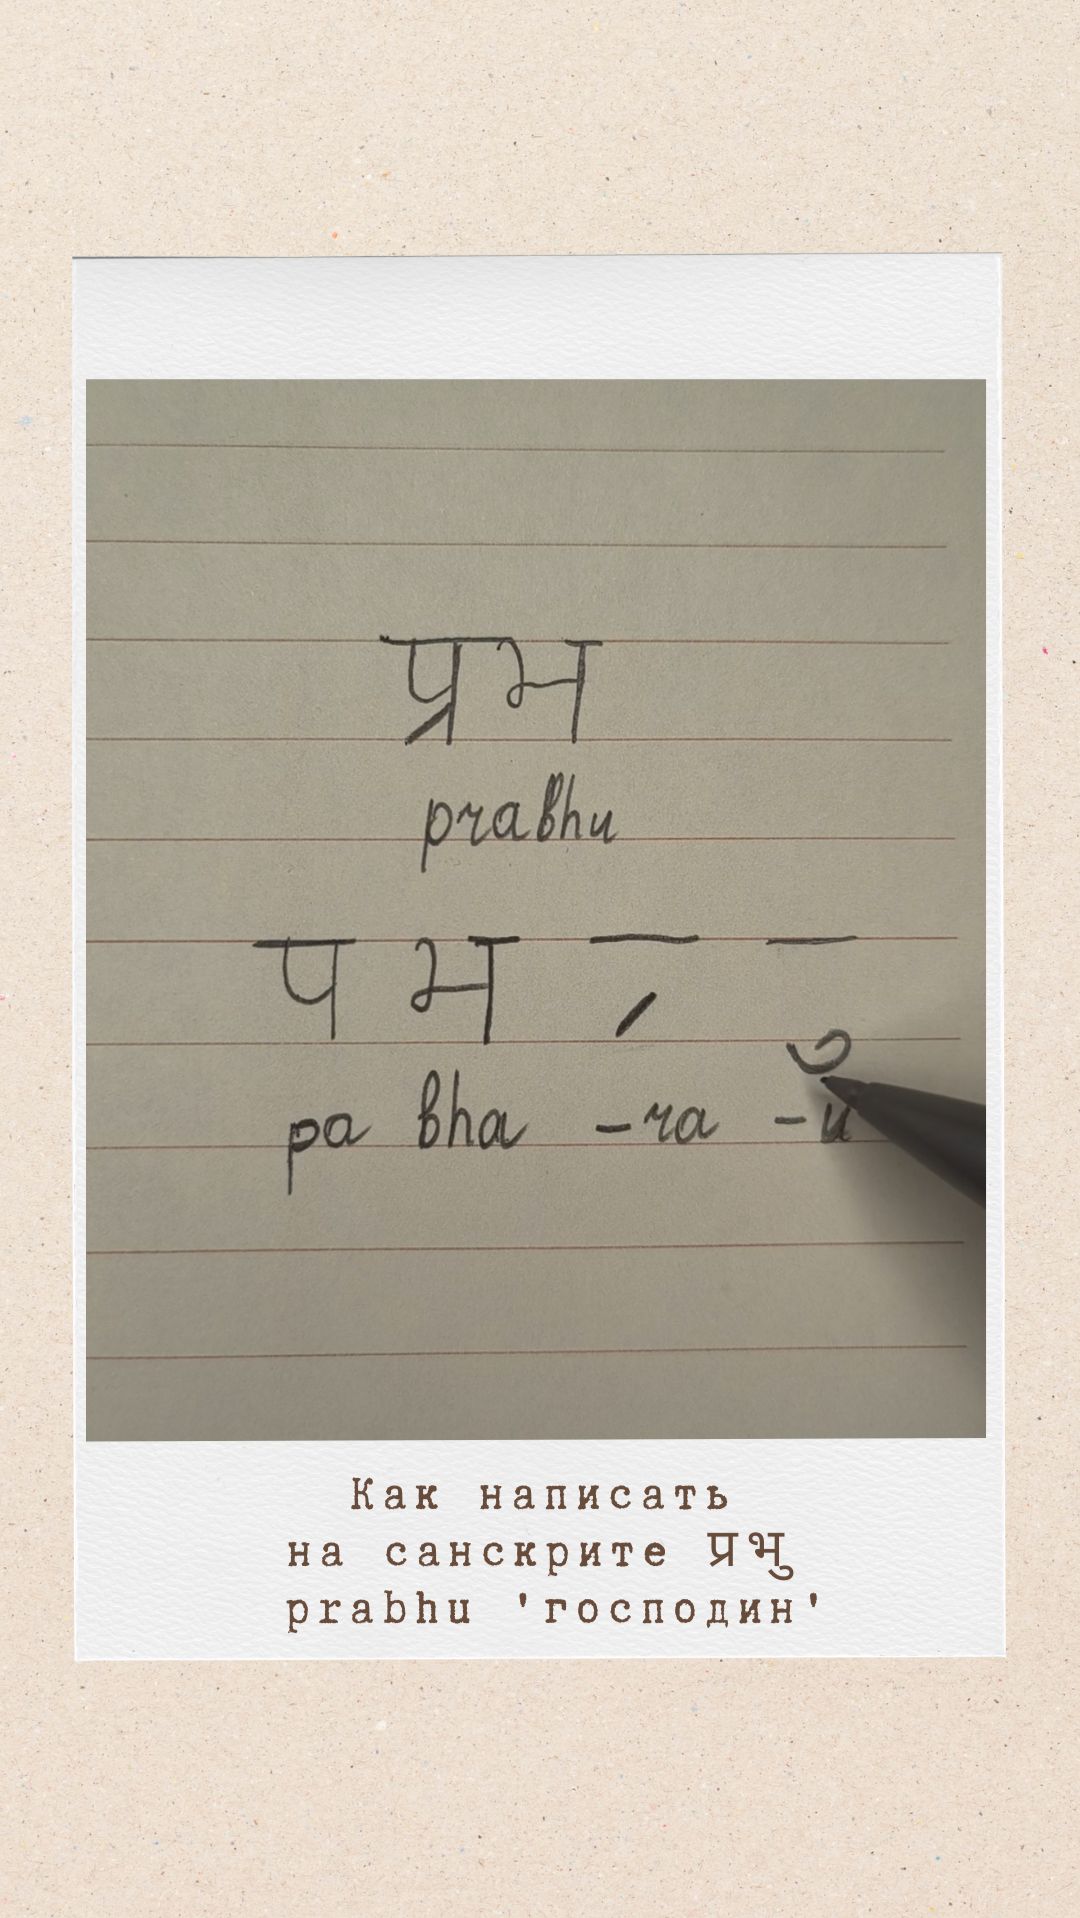 प्रभ
prabhu
प भ ्र ु
pa bha -ra -u
Как написать
на санскрите प्रभु
prabhu 'господин'